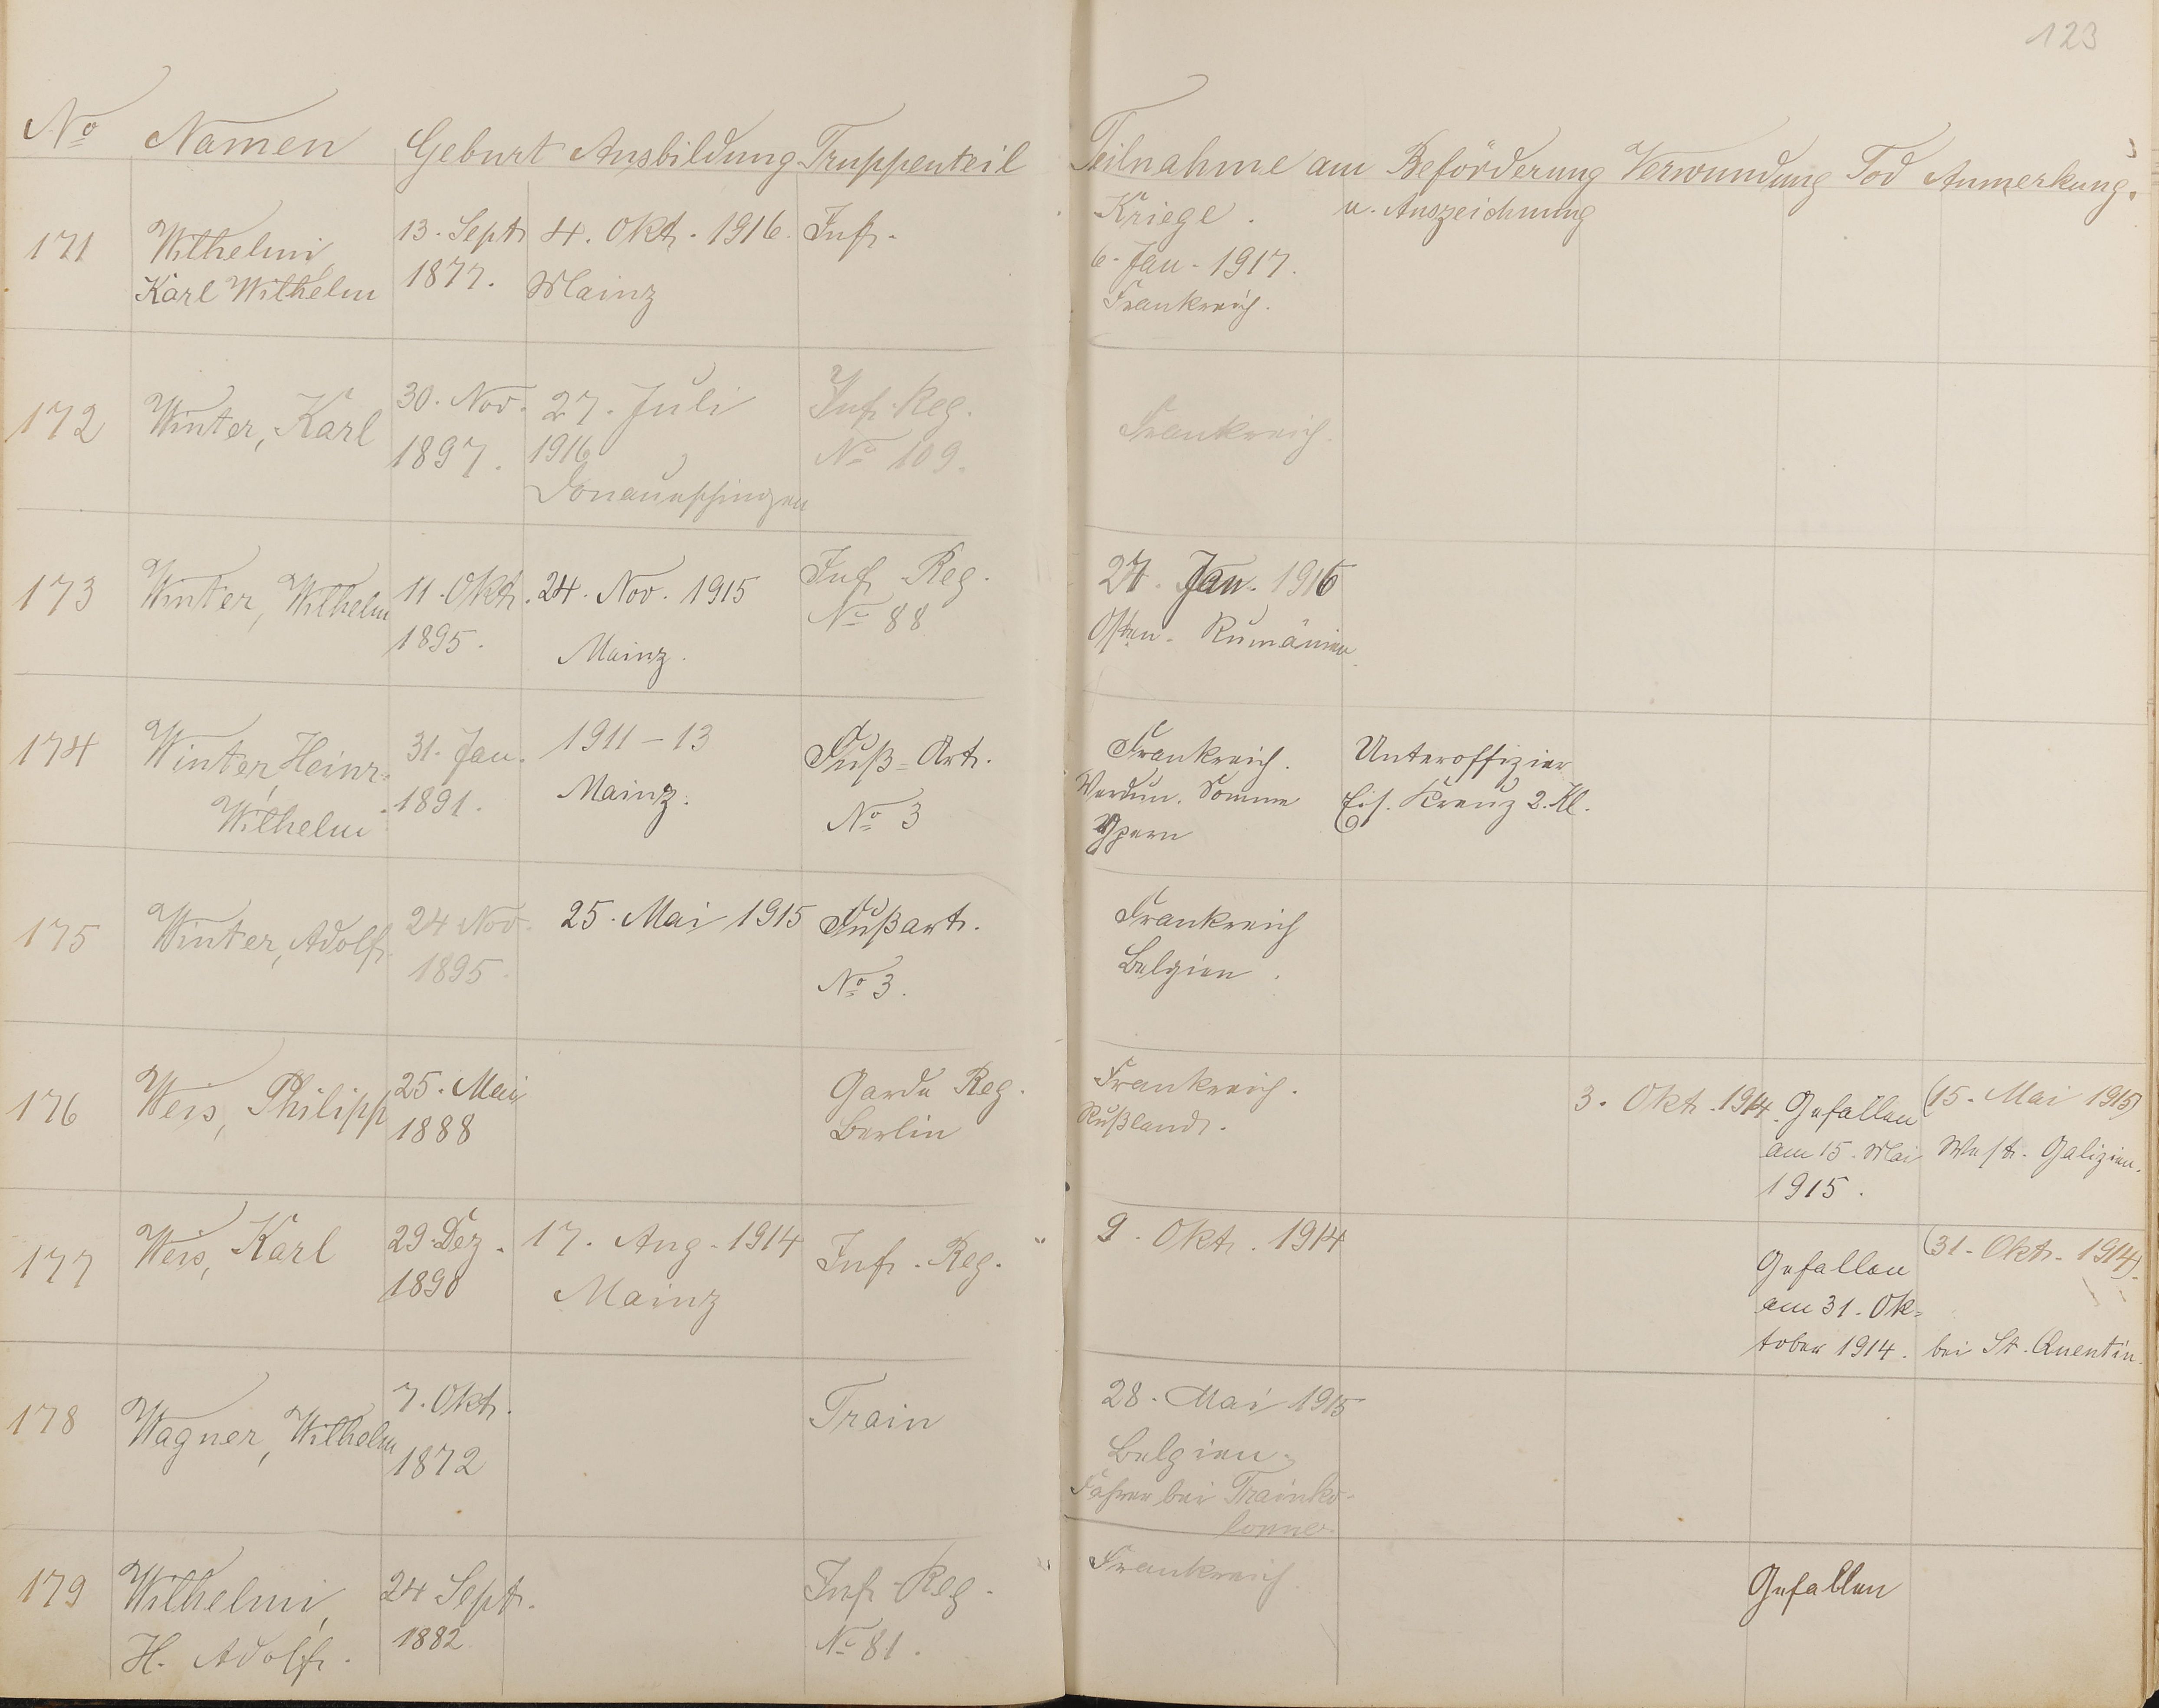 123
No Namen Geburt Ausbildung Truppenteil Teilnahme am Kriege. Beförderung u. Auszeichnung Verwundung Tod Anmerkung.
171
Wilhelmi,
Karl Wilhelm
13. Sept.
1877.
4. Okt. 1916.
Mainz
Inf.
6. Jan. 1917.
Frankreich.
172
Winter, Karl
30. Nov.
1897.
27. Juli
1916
Donaueschingen
Inf. Reg.
No 109.
Frankreich.
173
Winter, Wilhelm
11. Okt.
1895.
24. Nov. 1915
Mainz.
Inf. Reg.
No 88
Jan. 1916
Osten. Rumänien
174
Winter, Heinr.
Wilhelm
31. Jan.
1891.
1911-13
Mainz.
Fuß-Art.
No 3
Frankreich.
Verdun. Somme
Ypern
Unteroffizier
Eis. Kreuz 2. Kl.
175
Winter, Adolf.
24 Nov.
1895.
25. Mai 1915
Fußart.
No 3.
Frankreich
Belgien.
176
Weis, Philipp
25. Mai
1888
Garde Reg.
Berlin
Frankreich.
Rußland.
3. Okt. 1914.
Gefallen
am 15. Mai
1915.
(15. Mai 1915)
West. Galizien.
177
Weis, Karl
29. Dez.
1890
17. Aug. 1914
Mainz
Inf. Reg.
9. Okt. 1914
Gefallen
am 31. Ok-
tober 1914.
(31. Okt. 1914).
bei St. Quentin.
178
Wagner, Wilhelm
7. Okt.
1872
Train
28. Mai 1915
Belgien.
Fahrer bei Trainko-
lonne.
179
Wilhelmi,
H. Adolf.
24 Sept.
1882
Inf. Reg.
No 81.
Frankreich.
Gefallen